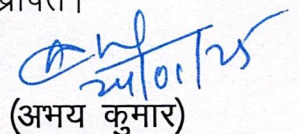 प्रेषित।
24/01/25
(अभय कुमार)